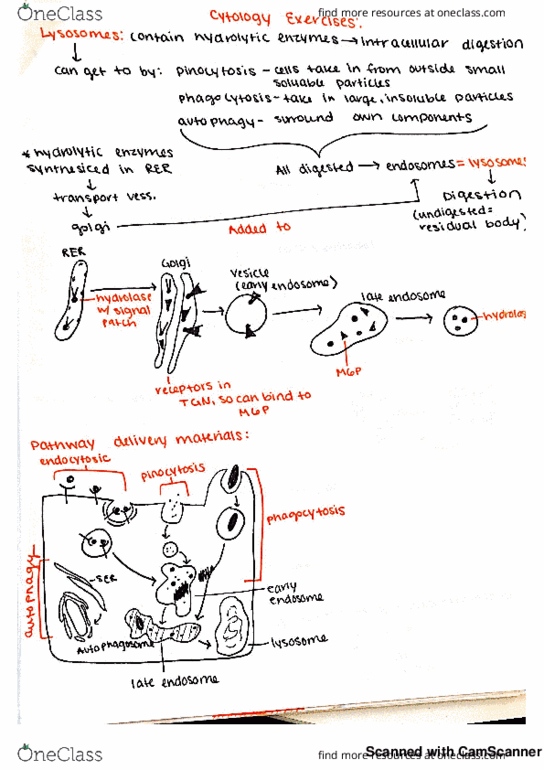 OneClass
find more resources at oneclass.com
Cytology Exercises:
Lysosomes: contain hydrolytic enzymes → intracellular digestion
can get to by: pinocytosis - cells take in from outside small
soluable particles
phagocytosis - take in large, insoluble particles
autophagy - surround own components
* hydrolytic enzymes
synthesiced in RER
All digested → endosomes = lysosome
transport vess.
Digestion
(undigested =
residual body)
golgi
Added to
RER
Golgi
vesicle
(early endosome)
late endosome
hydrolase
w/ signal
patch
hydrolas
M6P
receptors in
TGN, so can bind to
M6P
Pathway delivery materials:
endocytosic
pinocytosis
phagocytosis
autophagy
SER
early
endosome
Autophagosome
lysosome
late endosome
Scanned with CamScanner
OneClass
find more resources at oneclass.com